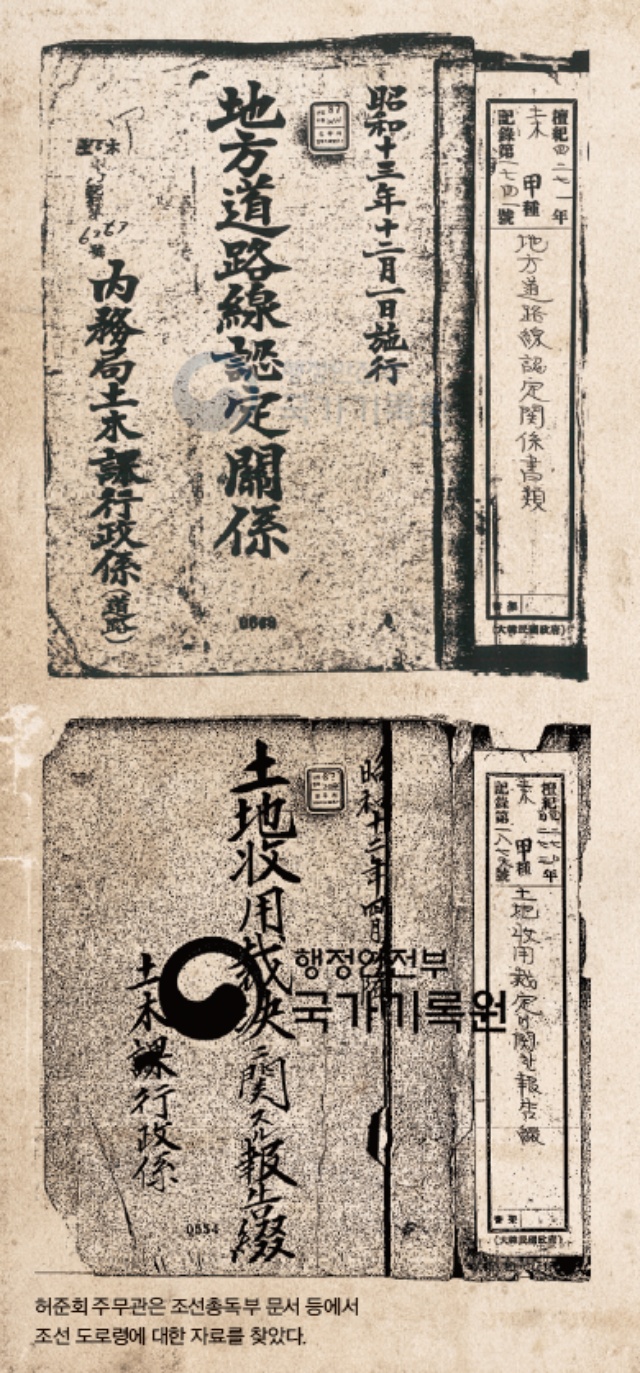 檀紀四二七一年
土木 甲種
記錄第一七四一號
地方道路線認定関係書類
(大韓民國政府)
昭和十三年十二月一日施行
地方道路線認定關係
內務局土木課行政係(道路)
檀紀
甲種
記錄第
土地收用裁定
報告綴
(大韓民國政府)
昭和十二年四月
土地收用裁決ニ関スル報告綴
土木課行政係
0554
행정안전부
국가기록원
허준회 주무관은 조선총독부 문서 등에서
조선 도로령에 대한 자료를 찾았다.